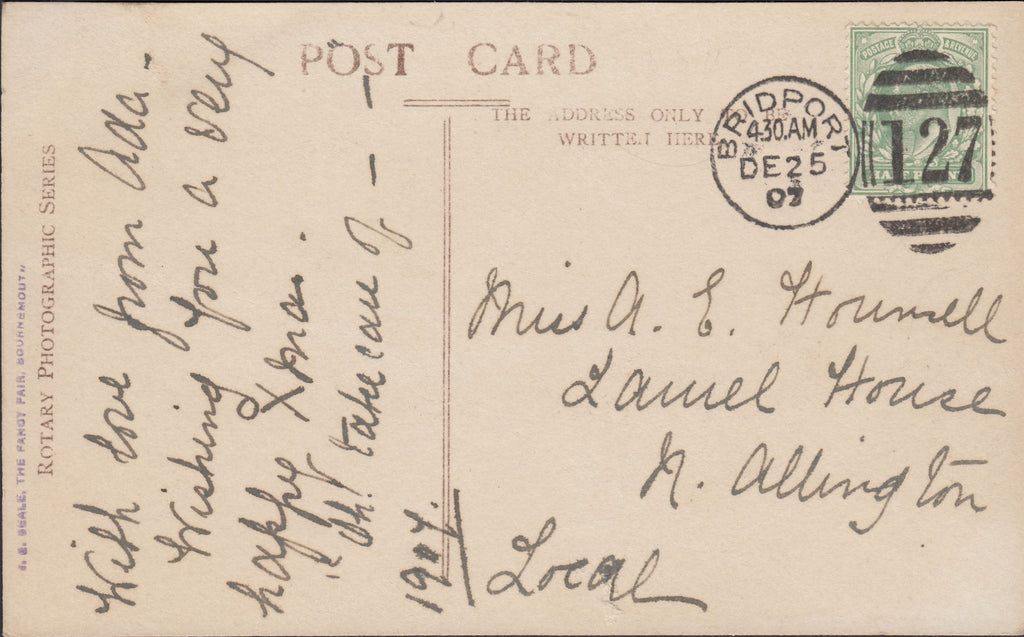 POST CARD
THE ADDRESS ONLY
WRITTEN HERE
ROTARY PHOTOGRAPHIC SERIES
SEALE, THE FANCY FAIR, BOURNEMOUTH
POSTAGE & REVENUE
BRIDPORT
4.30.AM
DE 25
07
127
With love from Ada -
Wishing you a very
happy Xmas.
"Oh! take care of — — —
1907.
Miss A. E. Hounsell
Laurel House
N. Allington
Local